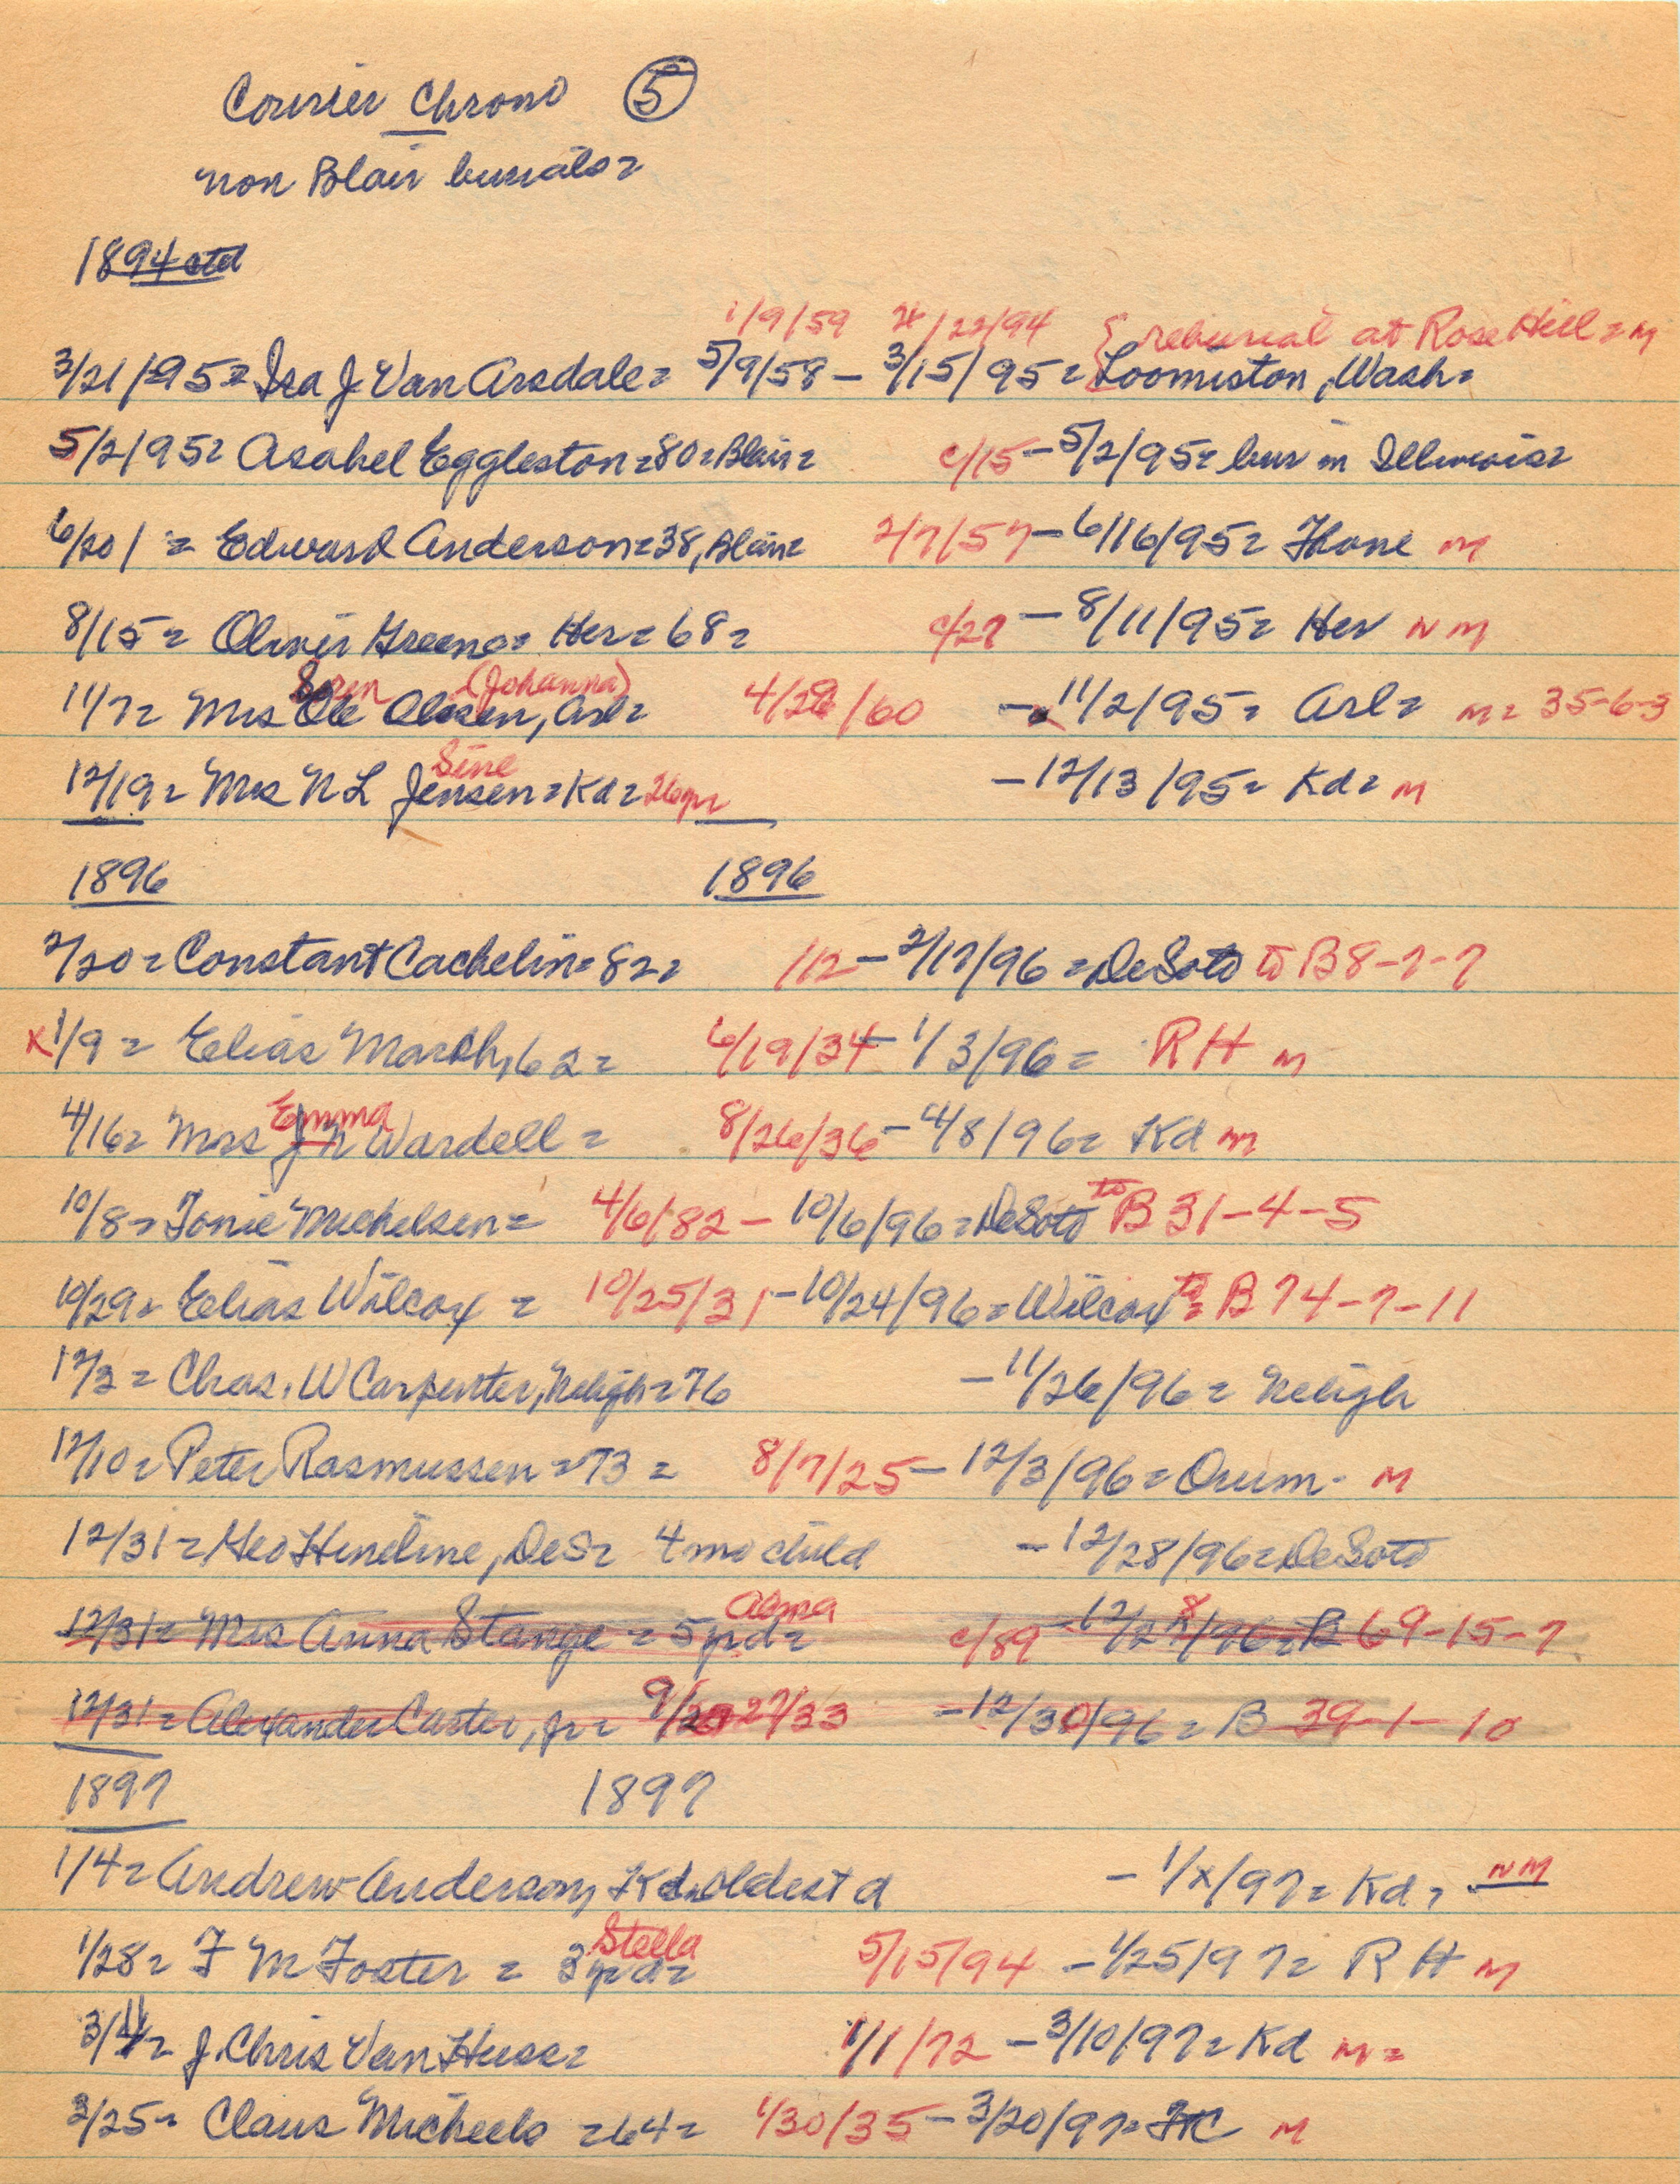 Courier Chrono ⑤
non Blair burials=
1894 ctd
1/9/59 4/22/94 { reburial at Rose Hill = m
3/21/95= Ira J Van Arsdale= 5/9/58 - 3/15/95= Loomiston, Wash=
5/2/95= Asahel Eggleston=80=Blair= c/15 - 5/2/95= bur in Illinois=
6/20/ = Edward Anderson=38, Blair= 2/7/57 - 6/16/95= Fkone m
8/15= Oliver Greeno= Her= 68= c/27 - 8/11/95= Her N M
Soren (Johanna)
11/7= Mrs Ole Olesen, Arl= 4/26/60 - 11/2/95= Arl= m= 35-6-3
Sine
12/19= Mrs N L Jensen=Kd=26yr - 12/13/95= Kd= m
1896 1896
2/20= Constant Cachelin=82= /12 - 2/17/96 = DeSoto to B8-7-7
x 1/9 = Elias Marsh, 62= 6/19/34 - 1/3/96= RH m
Emma
4/16= Mrs J N Wardell = 8/26/36 - 4/8/96= Kd m
10/8= Tonie Michelsen= 4/6/82 - 10/6/96=DeSoto to B 31-4-5
10/29= Elias Wilcox = 10/25/31 - 10/24/96=Wilcox to= B 74-7-11
12/3= Chas. W Carpenter, Neligh=76 - 11/26/96= Neligh
12/10= Peter Rasmussen=73 = 8/7/25 - 12/3/96=Orum- m
12/31= Geo Hineline, DeS= 4mo child - 12/28/96=DeSoto
Alma
12/31= Mrs Anna Stange = 5yrd= c/89 - 12/28/96=B 69-15-7
12/31= Alexander Carter, jr= 9/27/33 - 12/30/96= B 39-1-10
1897 1897
1/4= Andrew Anderson, Kd=oldest d - 1/x/97= Kd= NM
Stella
1/28= F M Foster = 3yrd= 5/15/94 - 1/25/97= R H m
3/11= J. Chris Van Huss= 1/1/72 - 3/10/97= Kd m=
3/25= Claus Micheels =64= 1/30/35 - 3/20/97= FtC m